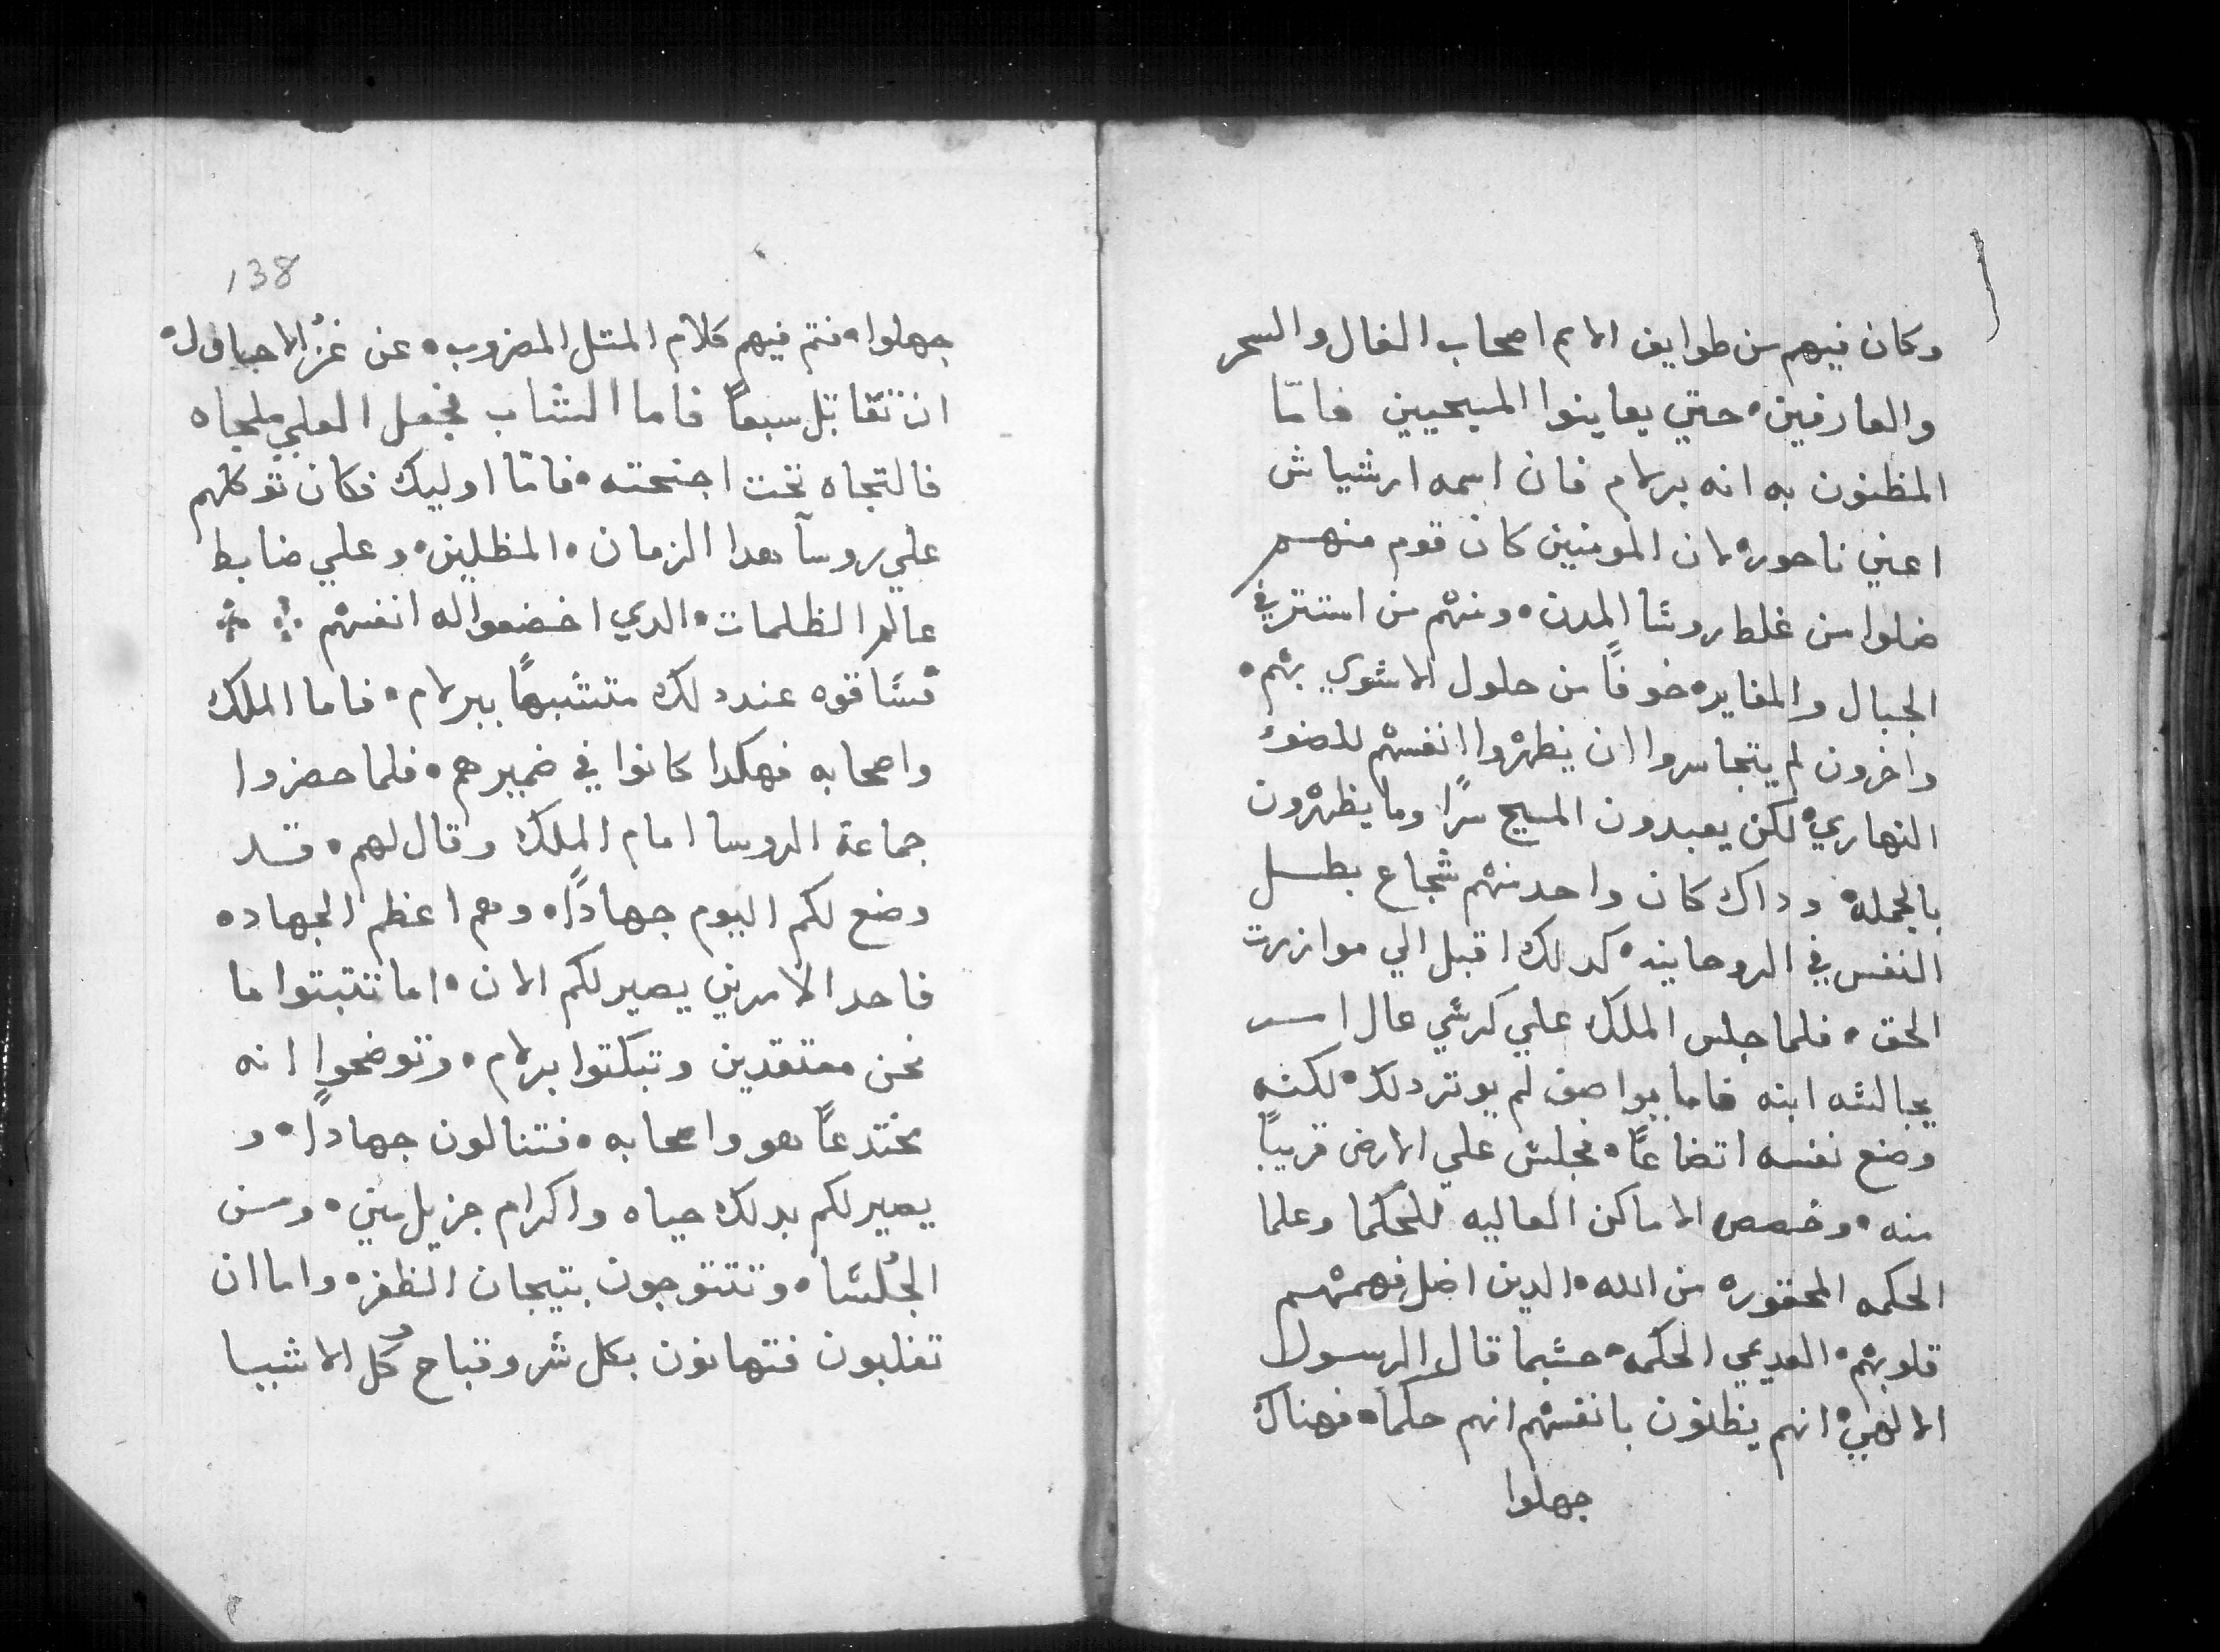 وكان فيهم من طوايف الامم اصحاب الفال والسحر
والعارفين، حتي يعاينوا المسيحيين فامّا
المظنون به انه برلام فان اسمه ارشياش
اعني ناحوره لان المومنين كان قوم منهم
ضلوا من غلط روسًا المدن، ومنهم من استتر في
الجبال والمغايره خوفًا من حلول الاسّوي بهم،
واخرون لم يتجاسروا ان يظهروا انفسهم للضوء
النهاري، لكن يعبدون المسيح سرًا وما يظهرون
بالجمله وداك كان واحد منهم شجاع بطل
النفس في الروحانيه، كدلك اقبل الي موازرت
الحق، فلما جلس الملك علي كرسّي عال امر
بجالسّه ابنه فاما يواصف لم يوتر دلك، لكنه
وضع نفسه اتضاعًا، فجلسّ علي الارض قريبًا
منه، وخصص الاماكن العاليه للحكما وعلما
الحكمه المحقوره من الله، الدين اضل فهمهم
قلوبهم، العديمي الحكمه، حسّبما قال الرسول
الالهي، انهم يظنون بانفسهم انهم حكما، فهناك
جهلوا
138
جهلوا، فتم فيهم كلام المتل المضروب، عن
ان تقاتل سبعًا فاما الشاب فجعل العلي ملجاه
فالتجاه تحت اجنحته، فامّا اوليك فكان توكلهم
علي روسآ هدا الزمان، المظلين، وعلي ضابط
عالم الظلمات، الدي اخضعوا له انفسهم
فسّاقوه عند دلك متشبهًا ببرلام، فاما الملك
واصحابه فهكدا كانوا في ضميرهم، فلما حضروا
جماعة الروسا امام الملك وقال لهم، قد
وضع لكم اليوم جهادًا، وهم اعظم الجهاده
فاحد الامرين يصير لكم الان، اما تتبتوا ما
نحن معتقدين وتبكتوا برلام، وتوضحوا انه
مختدعًا هو واصحابه، فتنالون جهادا، و
يصير لكم بدلك حياه واكرام جزيل مني، ومن
الجُلسّا، وتتتوجون بتيجان الظفره واما ان
تغلبون فتهانون بكل شر وقباح وكل الاشيا